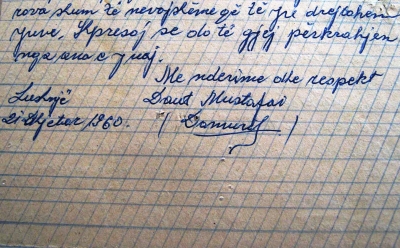 rova shum të nevojshëme që të ju drejtohem
juve. Shpresoj se do të gjej përkrahjen
nga ana e juaj.
Me nderime dhe respekt
Lushnjë Daut Mustafai
21 Dhjetor 1960. ( )